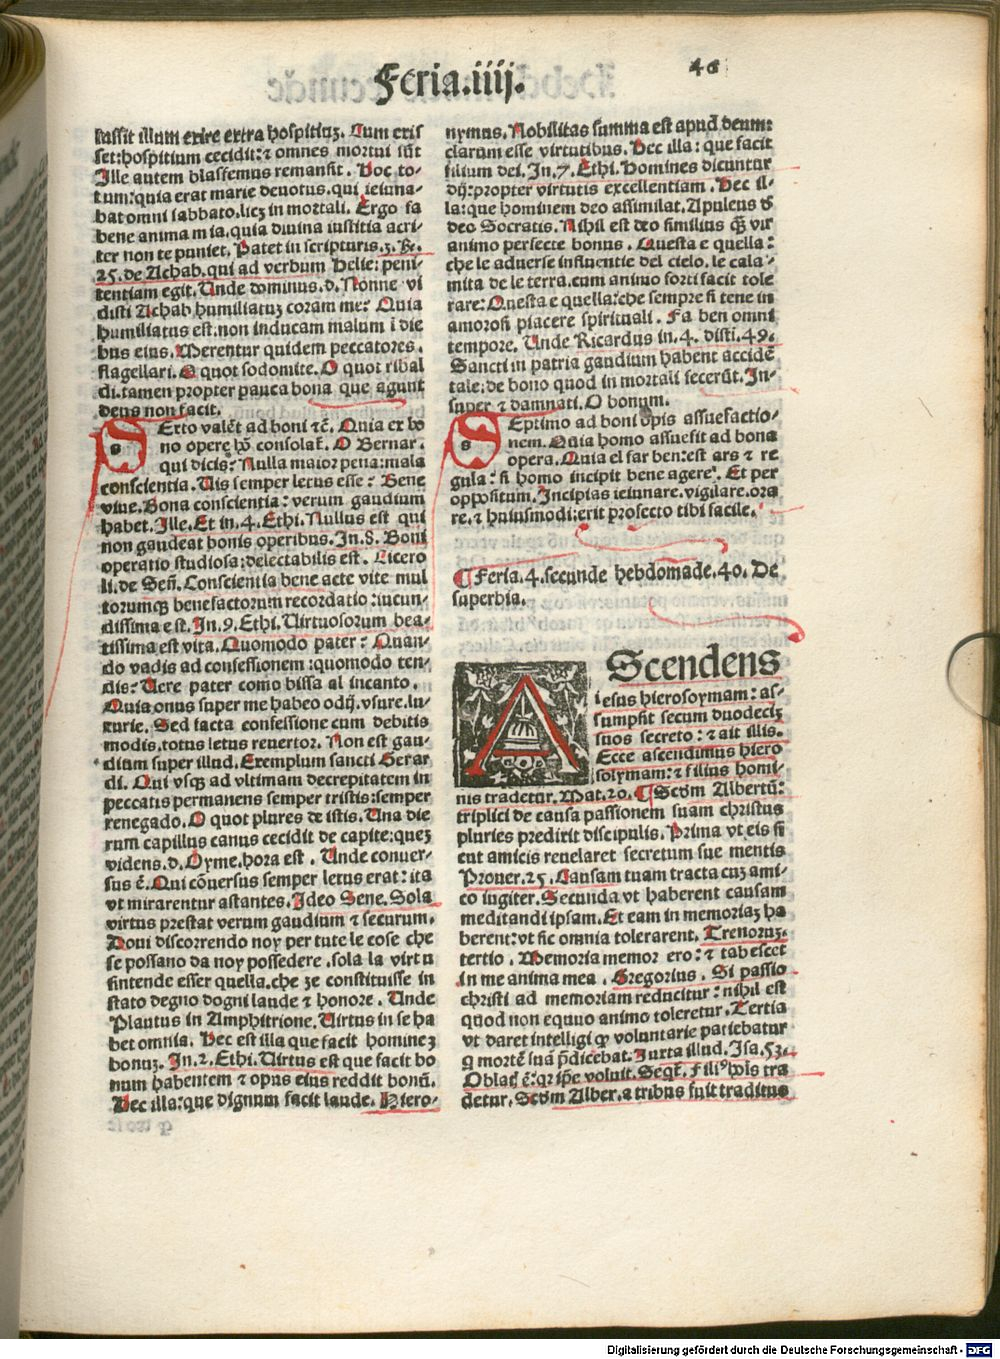 Feria.iiij.
46
iussit illum exire extra hospitiuz. Cum exis
set:hospitium cecidit:⁊ omnes mortui sūt
Ille autem blassemus remansit. Hoc to-
tum:quia erat marie deuotus.qui ieiuna-
bat omni sabbato.licz in mortali. Ergo fa
bene anima mia.quia diuina iustitia acri-
ter non te puniet. Patet in scripturis.3. Re.
25.de Achab.qui ad verbum Helie: peni-
tentiam egit. Unde dominus.d. Nonne vi
disti Achab humiliatuz coram me? Quia
humiliatus est:non inducam malum ī die
bus eius. Merentur quidem peccatores.
flagellari. O quot sodomite. O quot ribal
di.tamen propter pauca bona que agunt
deus non facit.
SExto valēt ad boni ⁊c̄. Quia ex bo
no opere hō consolat̄. O Bernar.
qui dicis? Nulla maior pena:mala
conscientia. Uis semper letus esse? Bene
viue. Bona conscientia: verum gaudium
habet. Ille. Et in.4. Ethi. Nullus est qui
non gaudeat bonis operibus. In.8. Boni
operatio studiosa:delectabilis est. Cicero
li.de Señ. Conscientia bene acte vite mul
torumqȝ benefactorum recordatio:iucun-
dissima est. In.9. Ethi. Uirtuosorum bea-
tissima est vita. Quomodo pater? Quan-
do vadis ad confessionem:quomodo ten-
dis? Uere pater como bissa al incanto.
Quia onus super me habeo odij.vsure.lu-
xurie. Sed facta confessione cum debitis
modis.totus letus reuertor. Non est gau-
dium super illud. Exemplum sancti Gerar
di. Qui vsqȝ ad vltimam decrepitatem in
peccatis permanens semper tristis:semper
renegado. O quot plures de istis. Una die
rum capillus canus cecidit de capite:quez
videns.d. Oyme.hora est. Unde conuer-
sus ē. Qui cōuersus semper letus erat:ita
vt mirarentur astantes. Ideo Sene. Sola
virtus prestat verum gaudium ⁊ securum.
Doui discorrendo noy per tute le cose che
se possano da noy possedere.sola la virtu
sintende esser quella.che ze constituisse in
stato degno dogni laude ⁊ honore. Unde
Plautus in Amphitrione. Uirtus in se ha
bet omnia. Hec est illa que facit hominez
bonuz. In.2. Ethi. Uirtus est que facit bo
num habentem ⁊ opus eius reddit bonū.
Hec illa:que dignum facit laude. Hiero-
nymus. Nobilitas summa est apud deum:
clarum esse virtutibus. Hec illa: que facit
filium dei. In.7. Ethi. Homines dicuntur
dij:propter virtutis excellentiam. Hec il-
la:que hominem deo assimilat. Apuleus d̄
deo Socratis. Nihil est deo similius q̄ȝ vir
animo perfecte bonus. Questa e quella:
che le aduerse influentie del cielo.le cala-
mita de le terra.cum animo forti facit tole
rare: Questa e quella:che sempre si tene in
amorosi piacere spirituali. Fa ben omni
tempore. Unde Ricardus in.4. disti.49.
Sancti in patria gaudium habent accidē
tale:de bono quod in mortali fecerūt. In-
super ⁊ damnati. O bonum.
SEptimo ad boni opis assuefactio-
nem. Quia homo assuefit ad bona
opera. Quia el far ben:est ars ⁊ re
gula: si homo incipit bene agere. Et per
oppositum. Incipias ieiunare.vigilare.ora
re.⁊ huiusmodi:erit profecto tibi facile.
¶ Feria.4.secunde hebdomade.40. De
superbia.
AScendens
iesus hierosoymam: as-
sumpsit secum duodeciz
suos secreto: ⁊ ait illis.
Ecce ascendimus hiero
soiymam:⁊ filius homi-
nis tradetur. Mat.20. ¶ Scd̄m Albertū:
triplici de causa passionem suam christus
pluries predixit discipulis. Prima vt eis si
cut amicis reuelaret secretum sue mentis
Prouer.25. Causam tuam tracta cuz ami-
co iugiter. Secunda vt haberent causam
meditandi ipsam. Et eam in memoriaz ha
berent:vt sic omnia tolerarent. Trenoruz.
tertio. Memoria memor ero: ⁊ tabescet
in me anima mea. Gregorius. Si passio
christi ad memoriam reducitur: nihil est
quod non equuo animo toleretur. Tertia
vt daret intelligi qȝ voluntarie patiebatur
q mortē suā p̄dicebat. Iuxta illud. Isa.53.
Oblat̄ ē:qr ip̄e voluit. Seqt̄. Fili⁹ hoīs tra
detur. Scd̄m Alber.a tribus fuit traditus